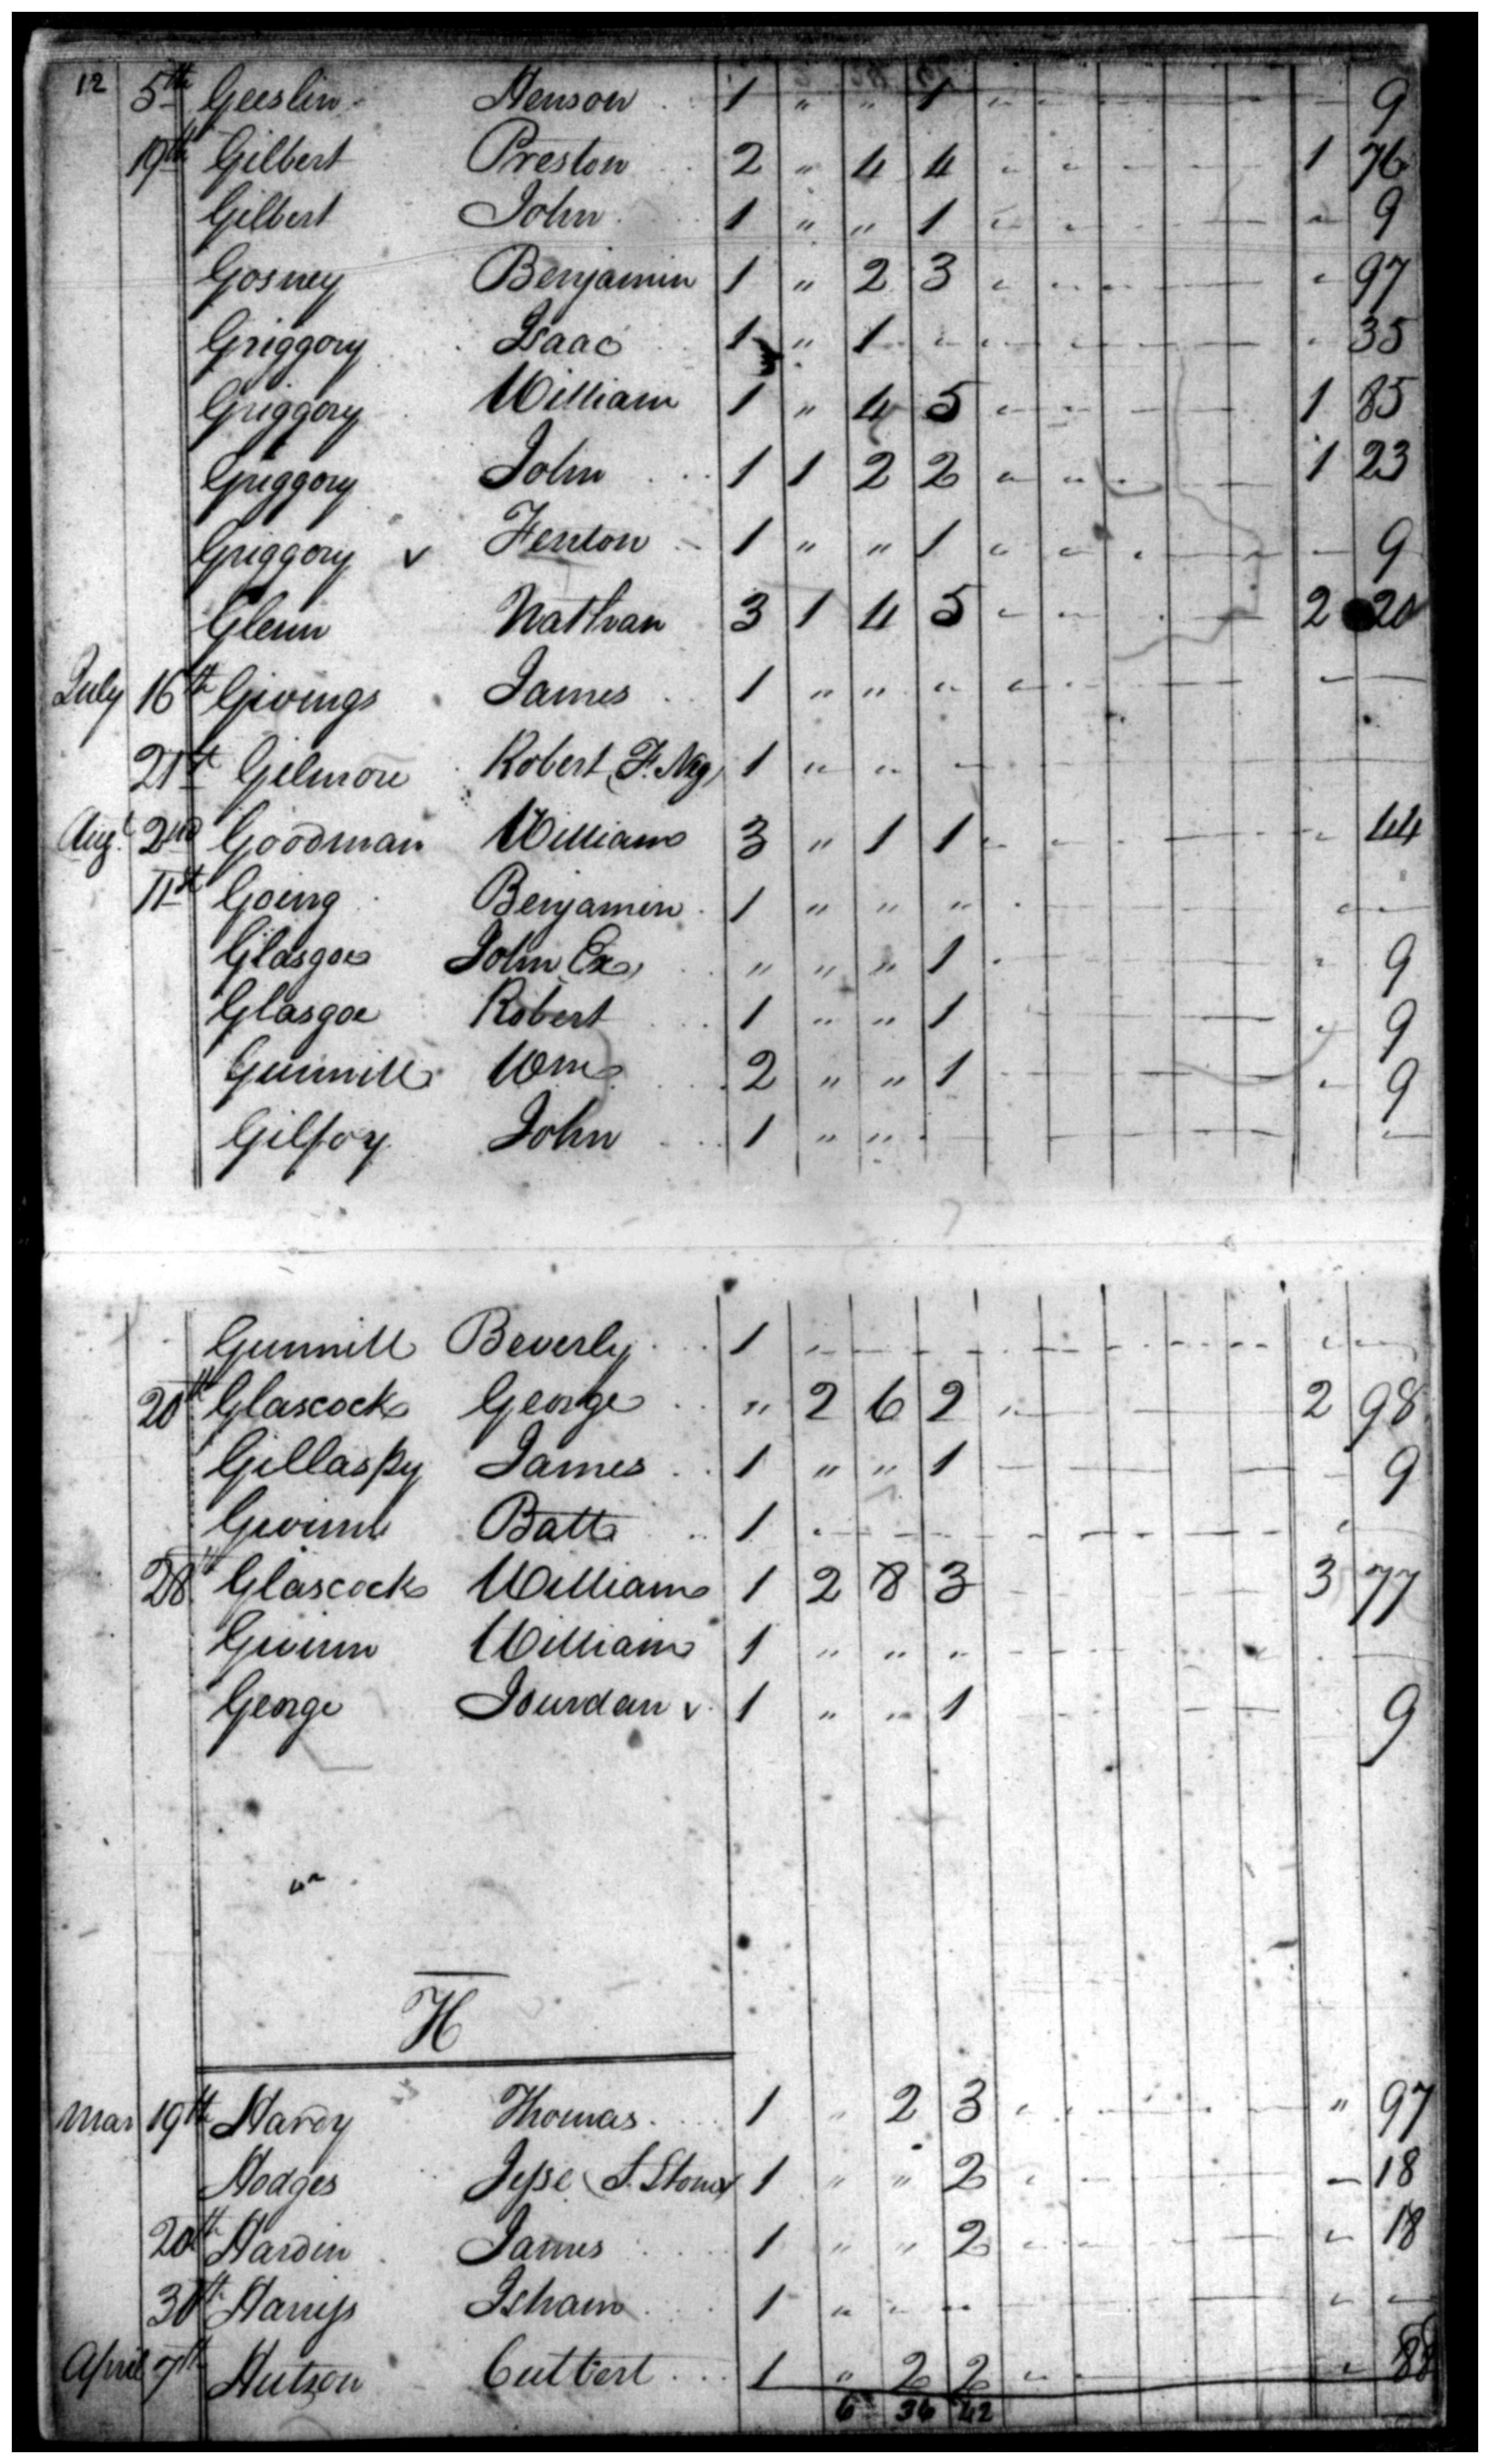 12 5th Geeslin Henson 1 " " 1 " - - - - - 9
19th Gilbert Preston 2 " 4 4 - - - - - 1 76
Gilbert John 1 " " 1 - - - - - - 9
Gosney Benjamin 1 " 2 3 - - - - - - 97
Griggory Isaac 1 " 1 - - - - - - - 35
Griggory William 1 " 4 5 - - - - - 1 85
Griggory John 1 1 2 2 - - - 1 23
Griggory v Fenton 1 " " 1 - - - - - - 9
Glenn Nathan 3 1 4 5 - - - - 2 20
July 16th Givings James 1 " " " - - - - - - -
21st Gilmore Robert (F. Neg) 1 " " - - - - - -
Augt 2nd Goodman William 3 " 1 1 - - - - - - 44
11th Going Benjamin 1 " " " - - - - - - -
Glasgoe John Ex, " " " 1 - - - - - - 9
Glasgoe Robert 1 " " 1 - - - - - 9
Gunnill Wm 2 " " 1 - - - - - 9
Gilfoy John 1 " " - - - - - -
Gunnill Beverly 1 - - - - - - - - - -
20th Glascock George " 2 6 2 - - - - - 2 98
Gillaspy James 1 " " 1 - - - - - - 9
Batts 1 - - - - - - - - -
28th Glascock William 1 2 8 3 - - - - - 3 77
Guinn William 1 " " " - - - - - -
George Jourdan v 1 " " 1 - - - - - 9
H
Mar 19th Hardy Thomas 1 " 2 3 - - - - - " 97
Hodges Jesse (S. Stone) 1 " " 2 - - - - - 18
20th Hardin James 1 " " 2 - - - - - - 18
30th Harriss Isham 1 " " " - - - - - - -
April 7th Hutson Cutbert 1 " 2 2 - - - 88
6 36 42